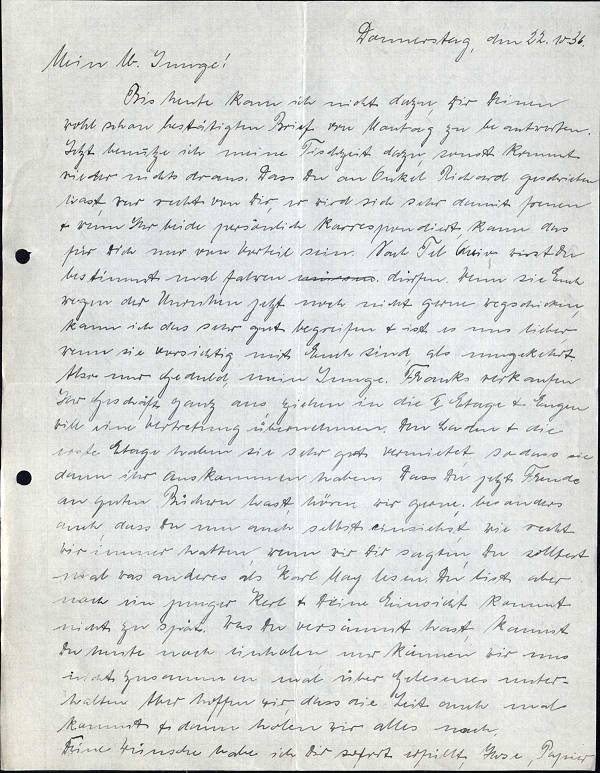 Donnerstag, den 22.10.36.
Mein lb. Junge!
Bis heute kam ich nicht dazu, Dir Deinen
wohl schon bestätigten Brief von Montag zu beantworten.
Jetzt benutze ich meine Tischzeit dazu, sonst kommt
wieder nichts draus. Dass Du an Onkel Richard geschrieben
hast, war recht von Dir, er wird sich sehr damit freuen
& wenn Ihr beide persönlich korrespondiert, kann das
für Dich nur von Vorteil sein. Nach Tel Aviv wirst Du
bestimmt mal fahren dürfen. Wenn sie Euch
wegen der Unruhen jetzt noch nicht gerne wegschicken,
kann ich das sehr gut begreifen & ist es uns lieber,
wenn sie vorsichtig mit Euch sind als umgekehrt
Also nur Geduld, mein Junge. Franks verkaufen
Ihr Geschäft ganz aus, ziehen in die II. Etage & Eugen
will eine Vertretung übernehmen. Den Laden & die
erste Etage haben sie sehr gut vermietet sodass sie
dann ihr Auskommen haben. Dass Du jetzt Freude
an guten Büchern hast, hören wir gerne, besonders
auch, dass Du nun auch selbst einsiehst, wie recht
wir immer hatten, wenn wir Dir sagten, Du solltest
mal was anderes als Karl May lesen. Du bist aber
noch ein junger Kerl & Deine Einsicht kommt
nicht zu spät. Was Du versäumt hast, kannst
Du heute noch einholen nur können wir uns
nicht zusammen mal über Gelesenes unter-
halten Aber hoffen wir, dass die Zeit auch mal
kommt & dann holen wir alles nach.
Deine Wünsche habe ich Dir sofort erfüllt. Hose, Papier